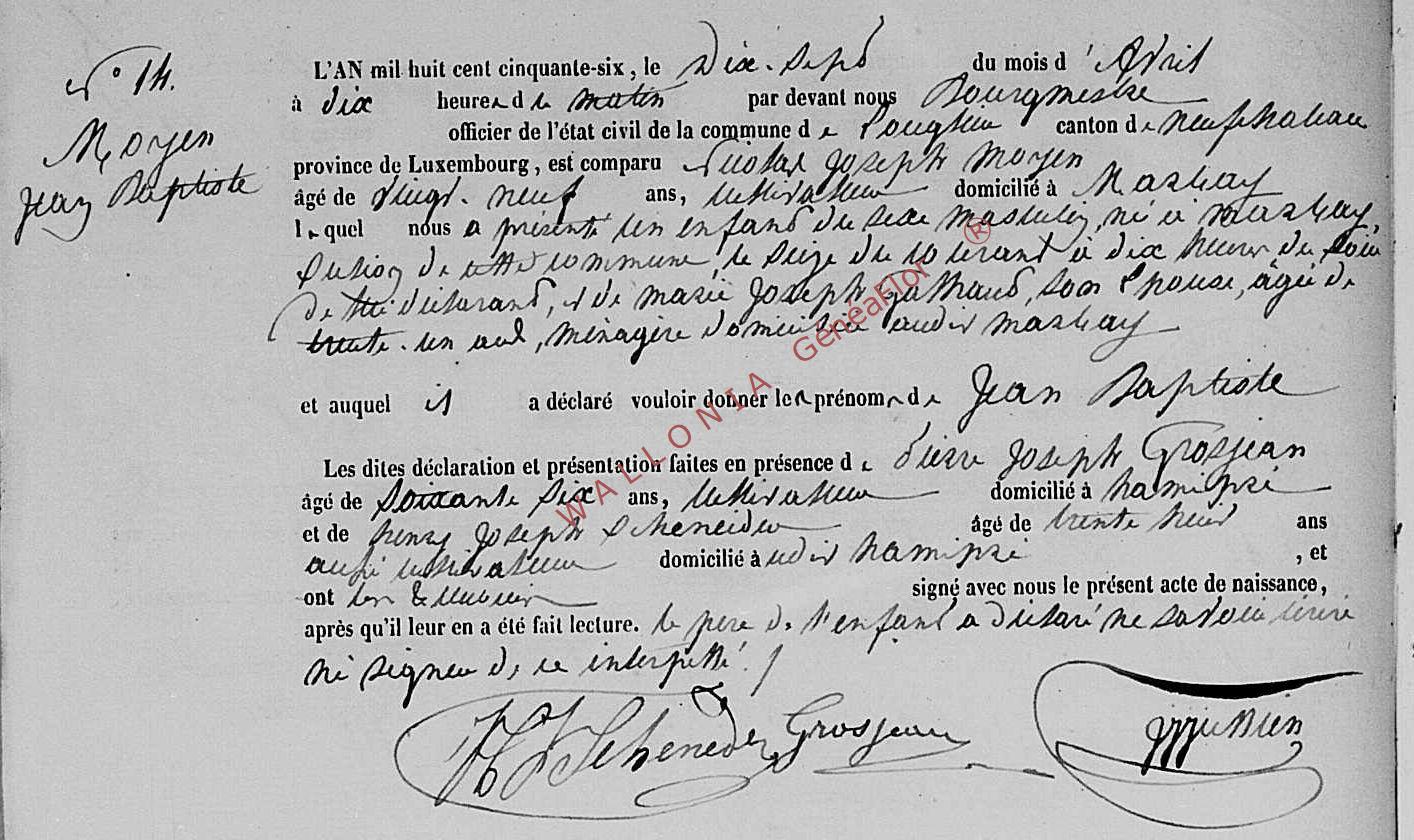 N° 14.
Moyen
Jean Baptiste
L'AN mil huit cent cinquante-six, le Dix-Sept du mois d'Avril
à dix heures de matin par devant nous Bourgmestre
officier de l'état civil de la commune de Longlier canton de neufchateau
province de Luxembourg, est comparu Nicolas Joseph Moyen
âgé de vingt-neuf ans, cultivateur domicilié à Massay
lequel nous a présenté un enfant du sexe masculin, né à massay,
section de cette commune, le seize du courant à dix heures du soir
de lui déclarant, et de marie Joseph son Epouse, âgée de
trente-un ans, ménagère domiciliée audit massay
et auquel il a déclaré vouloir donner les prénoms de Jean Baptiste
Les dites déclaration et présentation faites en présence de Pierre Joseph Grosjean
âgé de soixante six ans, cultivateur domicilié à hamipré
et de henry Joseph Scheneider âgé de trente huit ans
aussi cultivateur domicilié à udit hamipré , et
ont les témoins signé avec nous le présent acte de naissance,
après qu'il leur en a été fait lecture. le père de l'enfant a déclaré ne savoir écrire
ni signer de ce interpellé.
H J Scheneder Grosjean
WALLONIA GénéaFlor ®